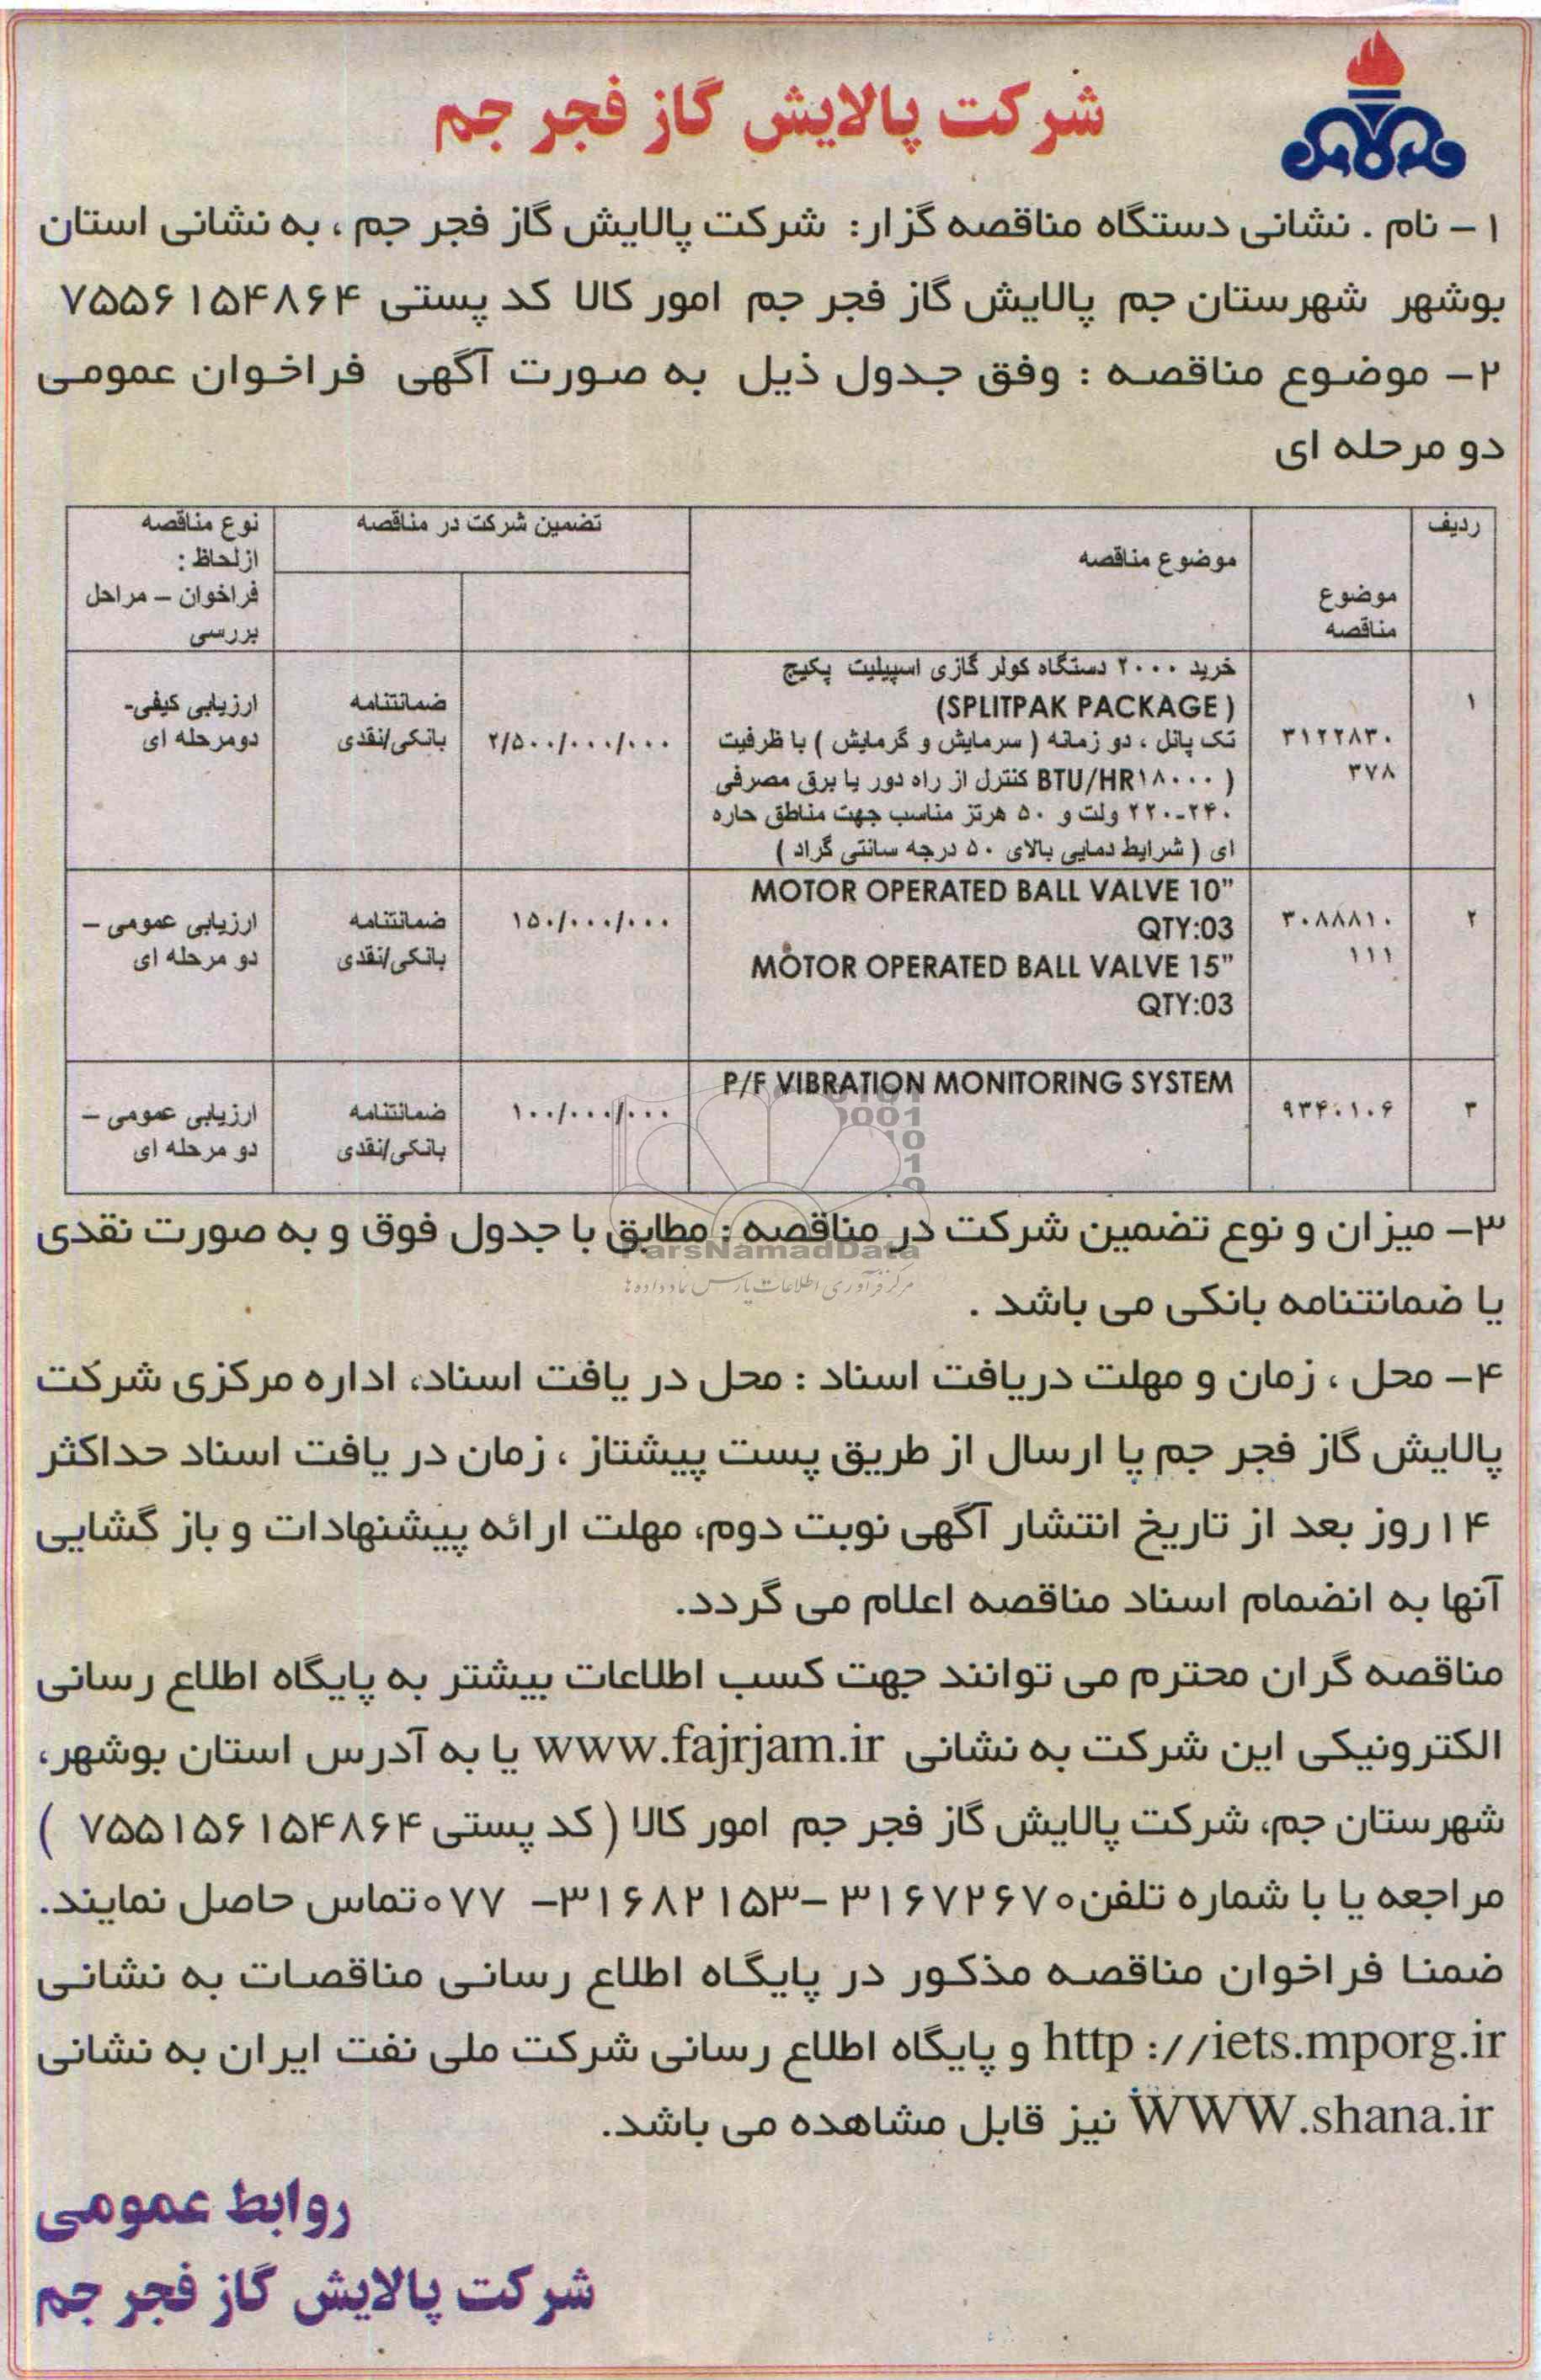 شرکت پالایش گاز فجر جم
۱- نام . نشانی دستگاه مناقصه گزار: شرکت پالایش گاز فجر جم ، به نشانی استان
بوشهر شهرستان جم پالایش گاز فجر جم امور کالا کد پستی ۷۵۵۶۱۵۴۸۶۴
۲- موضوع مناقصه : وفق جدول ذیل به صورت آگهی فراخوان عمومی
دو مرحله ای
ردیف
موضوع
مناقصه
موضوع مناقصه
تضمین شرکت در مناقصه
نوع مناقصه
ازلحاظ :
فراخوان – مراحل
بررسی
۱
۳۱۲۲۸۳۰
۳۷۸
خرید ۲۰۰۰ دستگاه کولر گازی اسپیلیت پکیج
(SPLITPAK PACKAGE )
تک پانل ، دو زمانه ( سرمایش و گرمایش ) با ظرفیت
( BTU/HR۱۸۰۰۰ کنترل از راه دور یا برق مصرفی
۲۲۰-۲۴۰ ولت و ۵۰ هرتز مناسب جهت مناطق حاره
ای ( شرایط دمایی بالای ۵۰ درجه سانتی گراد )
۲/۵۰۰/۰۰۰/۰۰۰
ضمانتنامه
بانکی/نقدی
ارزیابی کیفی-
دومرحله ای
۲
۳۰۸۸۸۱۰
۱۱۱
MOTOR OPERATED BALL VALVE 10"
QTY:03
MOTOR OPERATED BALL VALVE 15"
QTY:03
۱۵۰/۰۰۰/۰۰۰
ضمانتنامه
بانکی/نقدی
ارزیابی عمومی –
دو مرحله ای
۳
۹۳۴۰۱۰۶
P/F VIBRATION MONITORING SYSTEM
۱۰۰/۰۰۰/۰۰۰
ضمانتنامه
بانکی/نقدی
ارزیابی عمومی –
دو مرحله ای
۳- میزان و نوع تضمین شرکت در مناقصه : مطابق با جدول فوق و به صورت نقدی
ParsNamadData
مرکز فرآوری اطلاعات پارس نماد داده ها
یا ضمانتنامه بانکی می باشد .
۴- محل ، زمان و مهلت دریافت اسناد : محل در یافت اسناد، اداره مرکزی شرکت
پالایش گاز فجر جم یا ارسال از طریق پست پیشتاز ، زمان در یافت اسناد حداکثر
۱۴روز بعد از تاریخ انتشار آگهی نوبت دوم، مهلت ارائه پیشنهادات و باز گشایی
آنها به انضمام اسناد مناقصه اعلام می گردد.
مناقصه گران محترم می توانند جهت کسب اطلاعات بیشتر به پایگاه اطلاع رسانی
الکترونیکی این شرکت به نشانی www.fajrjam.ir یا به آدرس استان بوشهر،
شهرستان جم، شرکت پالایش گاز فجر جم امور کالا ( کد پستی ۷۵۵۱۵۶۱۵۴۸۶۴ )
مراجعه یا با شماره تلفن۳۱۶۷۲۶۷۰ -۳۱۶۸۲۱۵۳- ۰۷۷تماس حاصل نمایند.
ضمنا فراخوان مناقصه مذکور در پایگاه اطلاع رسانی مناقصات به نشانی
http ://iets.mporg.ir و پایگاه اطلاع رسانی شرکت ملی نفت ایران به نشانی
WWW.shana.ir نیز قابل مشاهده می باشد.
روابط عمومی
شرکت پالایش گاز فجر جم